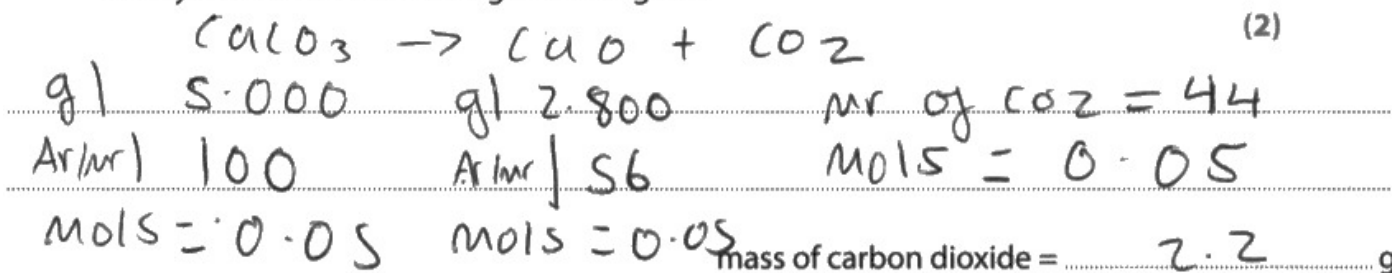 CaCO3 -> CaO + CO2 (2)
g| 5.000 g| 2.800 Mr of CO2 = 44
Ar/Mr| 100 Ar/Mr| 56 Mols = 0.05
Mols = 0.05 Mols = 0.05 mass of carbon dioxide = 2.2 g